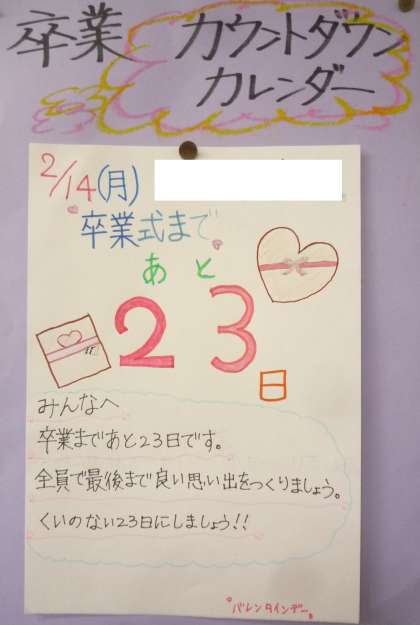 卒業 カウントダウン
カレンダー
2/14(月)
卒業式まで
あと
23
日
みんなへ
卒業まであと23日です。
全員で最後まで良い思い出をつくりましょう。
くいのない23日にしましょう!!
バレンタインデー